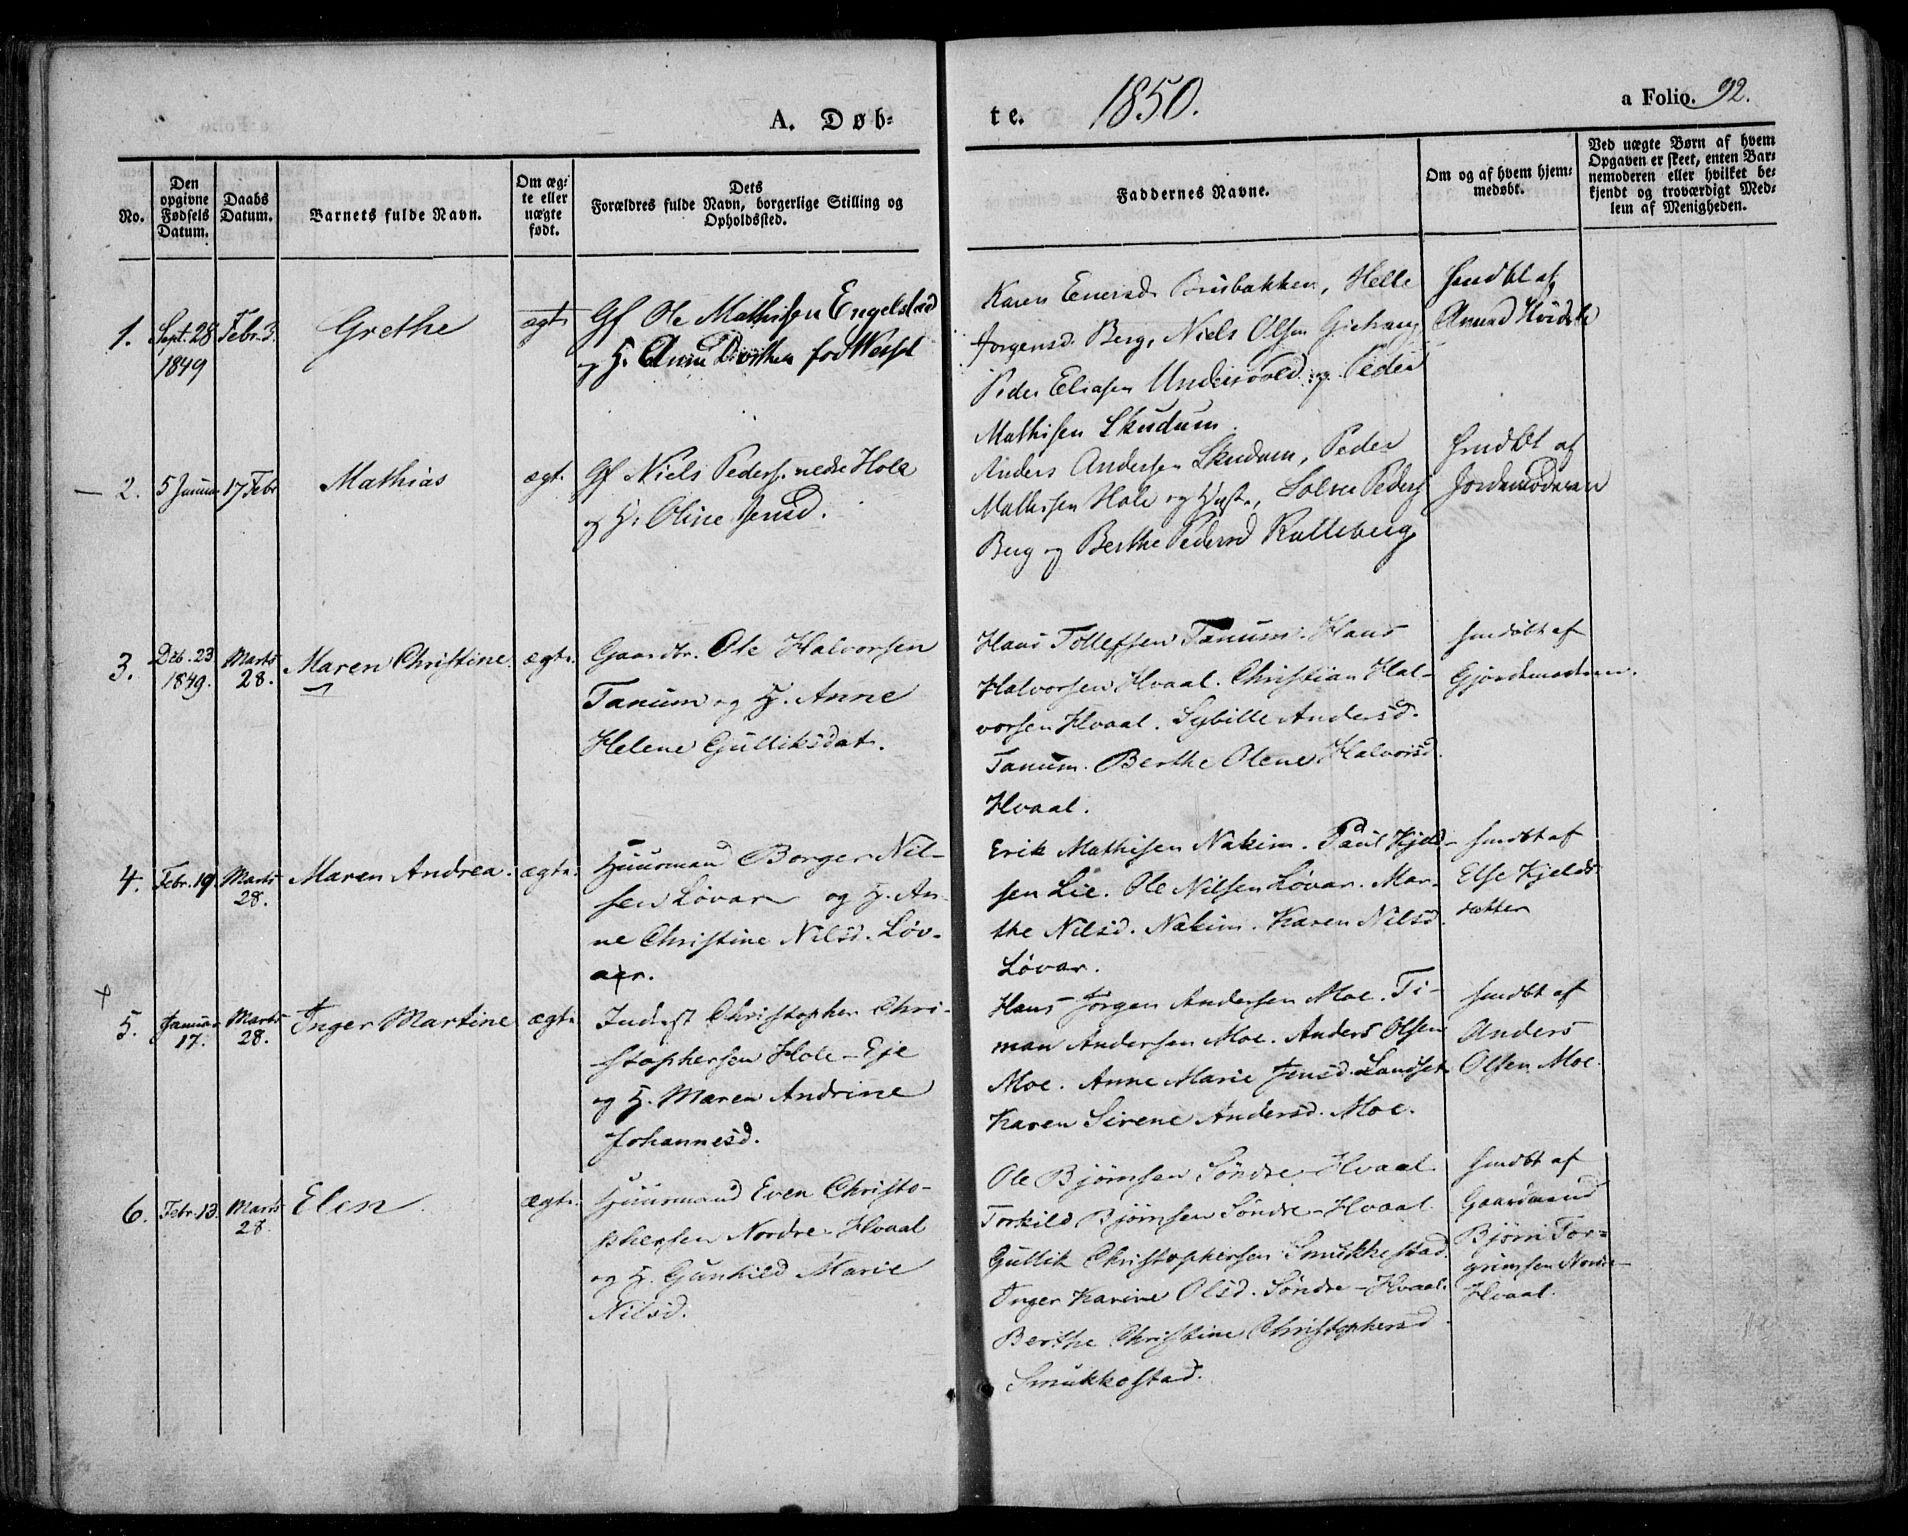 A. Døb-
te.
1850.
a Folio. 92.
No.
Den
opgivne
Fødsels
Datum.
Daabs
Datum.
Barnets fulde Navn.
Om æg-
te eller
uægte
født.
Dets
Forældres fulde Navn, borgerlige Stilling og
Opholdssted.
Faddernes Navne.
Om og af hvem hjem-
medøbt.
Ved uægte Børn af hvem
Opgaven er skeet, enten Bar-
nemoderen eller hvilket be-
kjendt og troværdigt Med-
lem af Menigheden.
1.
Sept. 28
1849
Febr. 3.
Grethe
ægt.
Gf Ole Mathisen Engelstad
og H. Anne Dorthea fød Wessel
Karen Enersd. Brusbakken, Helle
Jorgensd. Berg, Niels Olsen
Peder Eliasen Undersvold og Peder
Mathisen Skudum.
hmdbt af
Amund
2.
5 Januar
17 Febr
Mathias
ægt.
Gf Niels Peders. nedre Hole
og H. Oline Jensd.
Anders Andersen Skudum, Peder
Mathisen Hole og Hust., Solve Peders
Berg og Berthe Pedersd
hmdbt af
Jordemoderen
3.
Deb. 23
1849.
Marts
28.
Maren Christine.
ægt.
Gaardbr. Ole Halvorsen
Tanum og H. Anne
Helene Gulliksdat.
Hans Tollefsen Tanum. Hans
Halvorsen Hvaal. Christian Hal-
vorsen Hvaal. Sybille Andersd.
Tanum. Berthe Olene Halvorsd.
Hvaal.
hmdøbt af
Gjordemoderen.
4.
Febr. 19
Marts
28.
Maren Andrea.
ægt.
Huusmand Borger Nil-
sen Løvar og H. An-
ne Christine Nilsd. Løv-
aar.
Erik Mathisen Nakim. Paul Kjeld-
sen Lie. Ole Nilsen Løvar. Mar-
the Nilsd. Nakim. Karen Nilsd.
Løvar.
hmdbt af
Else Kjelds
datter
5.
Januar
17.
Marts
28.
Inger Martine
ægt.
Inderst Christopher Chri-
stophersen Hole-Eje
og H. Maren Andrine
Johannesd.
Hans Jørgen Andersen Moe. Ti-
man Andersen Moe. Anders Olsen
Moe. Anne Marie Jensd. Landset
Karen Sirene Andersd. Moe.
hmdbt af
Anders
Olsen Moe.
6.
Febr. 13.
Marts
28.
Elen
ægt.
Huusmand Even Christo-
phersen Nordre-Hvaal
og H. Gunhild Marie
Nilsd.
Ole Bjørnsen Søndre-Hvaal
Torkild Bjørnsen Søndre-Hvaal
Gullik Christophersen Smukkestad.
Inger Karine Olsd. Søndre-Hvaal.
Berthe Christine Christophersd.
Smukkestad.
hmdbt af
Gaardmand
Bjørn Tor-
grimsen Nordre-
Hvaal.